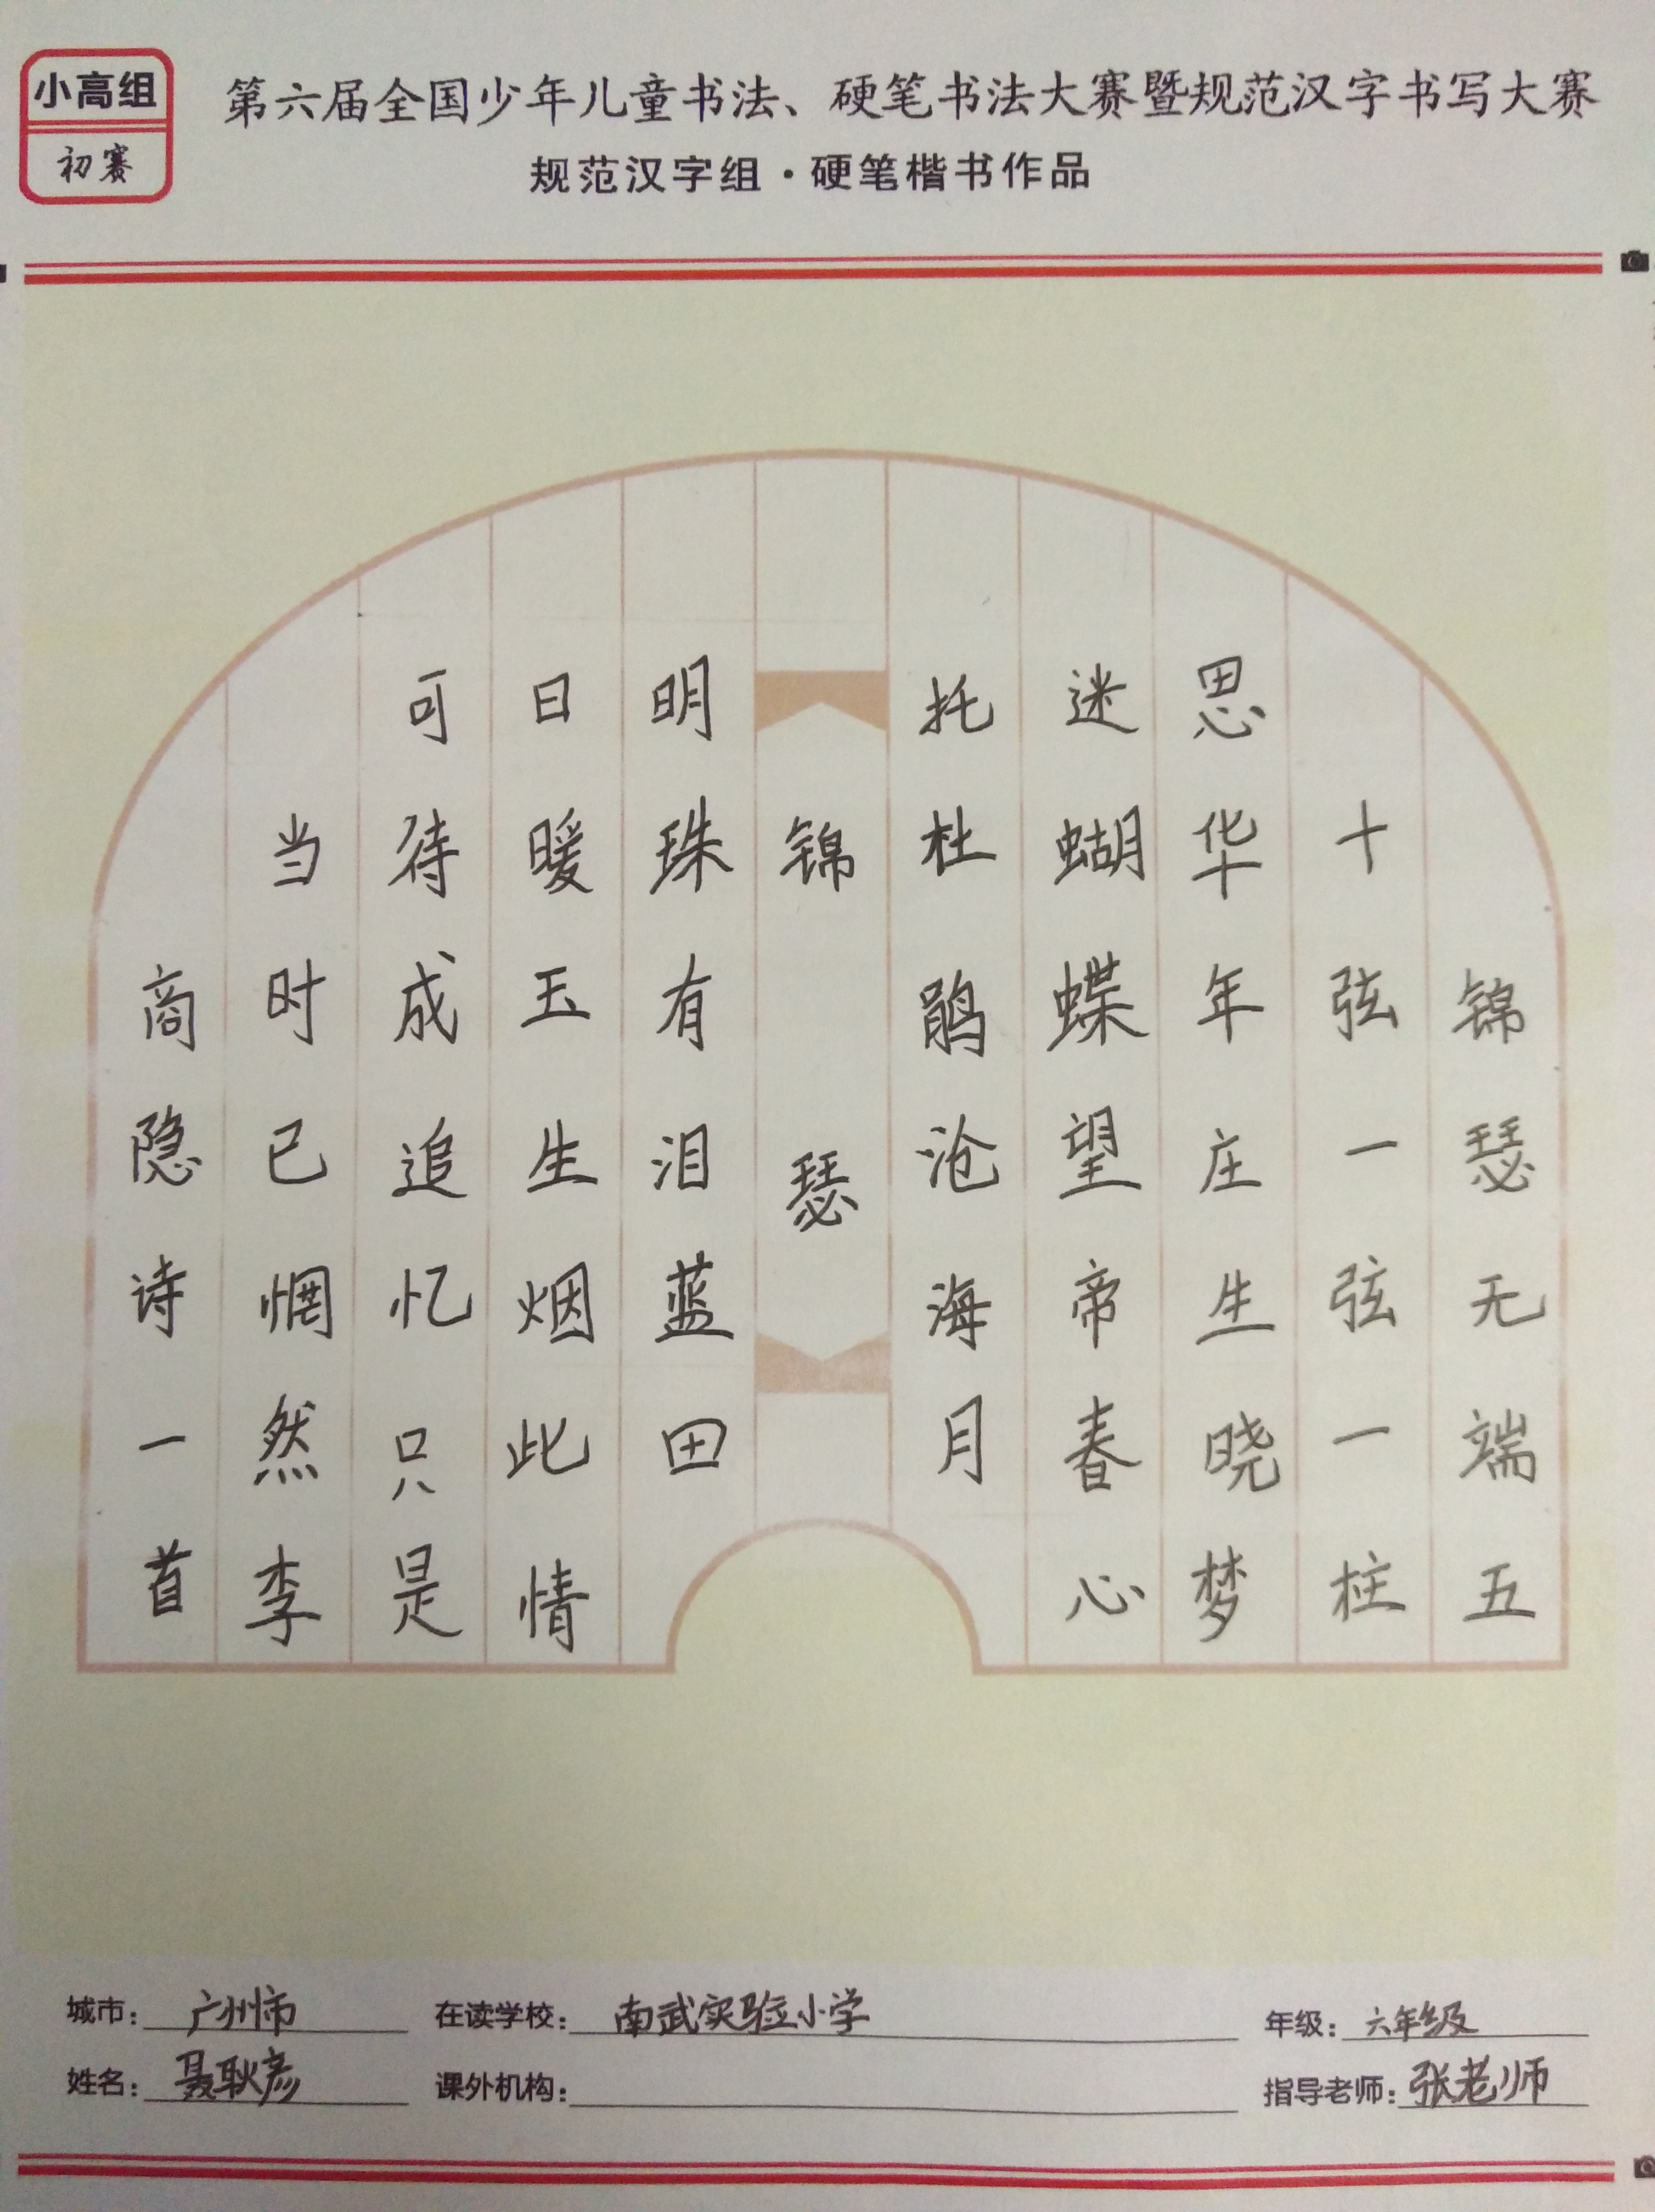 小高组
初赛
第六届全国少年儿童书法、硬笔书法大赛暨规范汉字书写大赛
规范汉字组·硬笔楷书作品
锦瑟无端五
十弦一弦一柱
思华年庄生晓梦
迷蝴蝶望帝春心
托杜鹃沧海月
锦瑟
明珠有泪蓝田
日暖玉生烟此情
可待成追忆只是
当时已惘然李
商隐诗一首
城市：广州市
在读学校：南武实验小学
年级：六年级
姓名：聂耿彦
课外机构：
指导老师：张老师